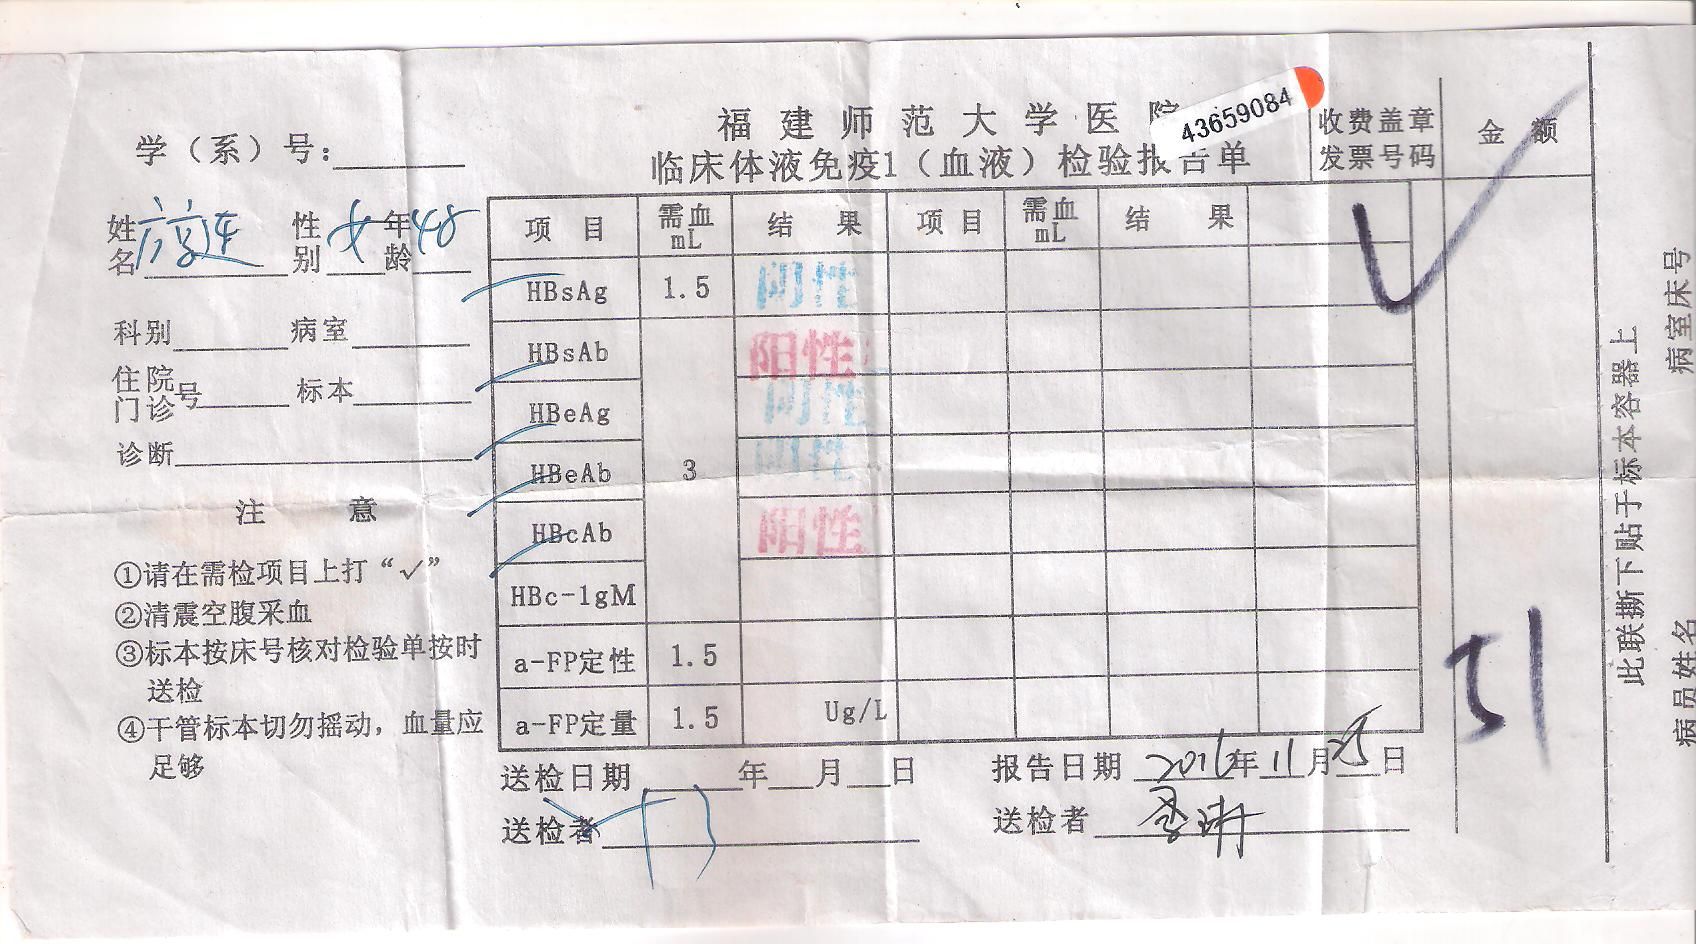 福建师范大学医院
43659084
临床体液免疫1（血液）检验报告单
收费盖章
发票号码
金 额
学（系）号：
姓名 性别 女 年龄 48
科别 病室
住院
门诊 号 标本
诊断
注 意
①请在需检项目上打“✓”
②清震空腹采血
③标本按床号核对检验单按时
送检
④干管标本切勿摇动，血量应
足够
项 目 需血mL 结 果 项 目 需血mL 结 果
HBsAg 1.5 阴性
HBsAb 阳性
HBeAg 阴性
HBeAb 3 阴性
HBcAb 阳性
HBc-1gM
a-FP定性 1.5
a-FP定量 1.5 Ug/L
送检日期 年 月 日 报告日期 年 11 月 日
送检者 送检者
此联撕下贴于标本容器上
病员姓名 病室床号